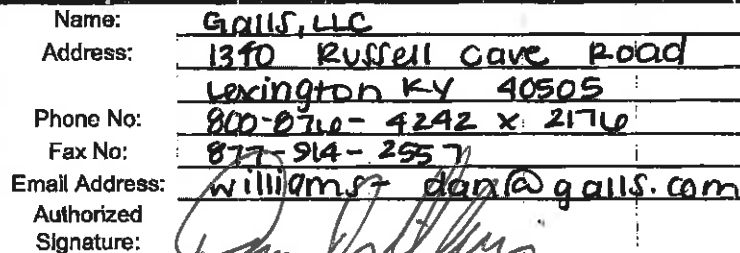 Name: Galls, LLC
Address: 1340 Russell Cave Road
Lexington KY 40505
Phone No: 800-876-4242 x 2176
Fax No: 877-914-2557
Email Address: williams-dan@galls.com
Authorized
Signature: